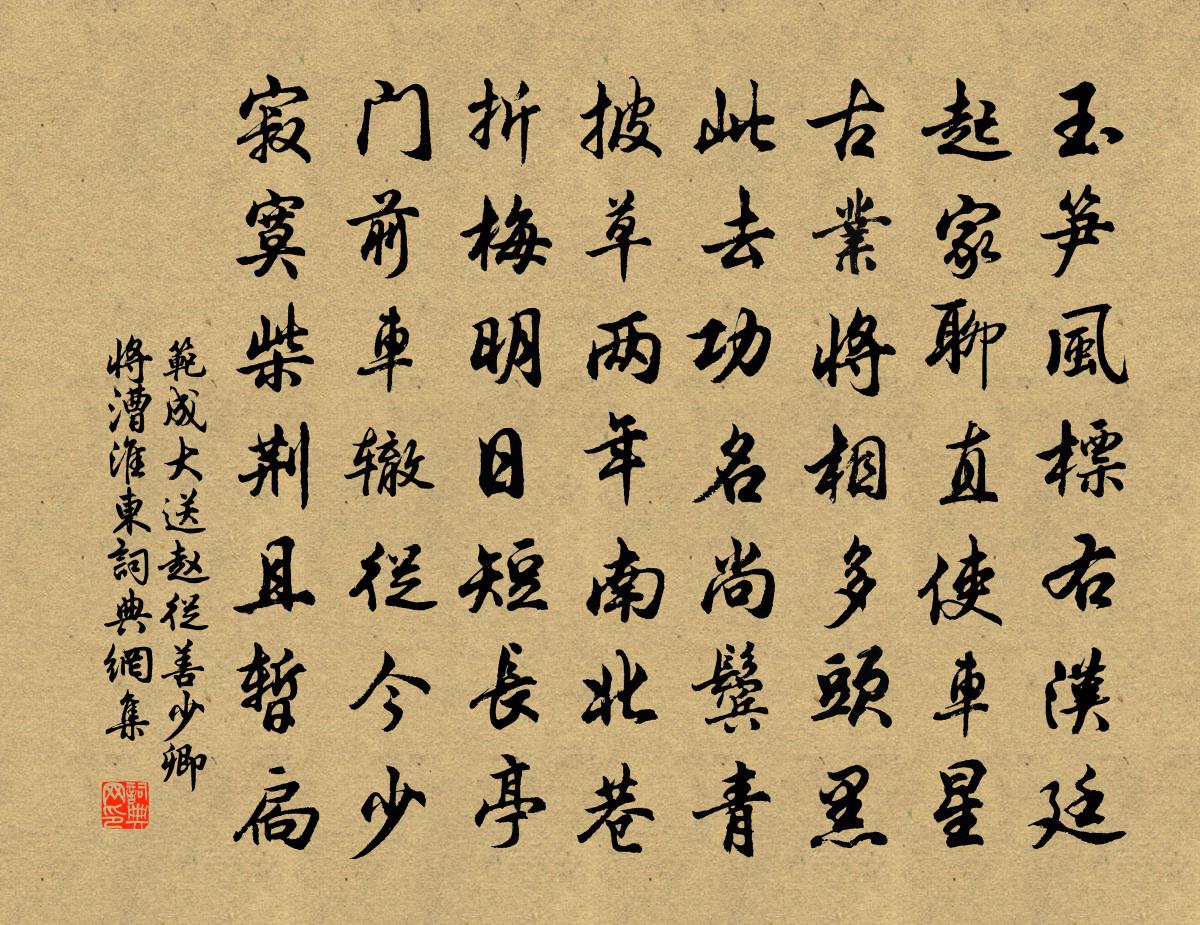 玉笋風標右漢廷
起家聊直使車星
古業將相多頭黑
此去功名尚鬢青
披草兩年南北巷
折梅明日短長亭
门前車辙從今少
寂寞柴荆且暫扃
範成大送赵從善少卿
將漕淮東詞典網集
詞典网印